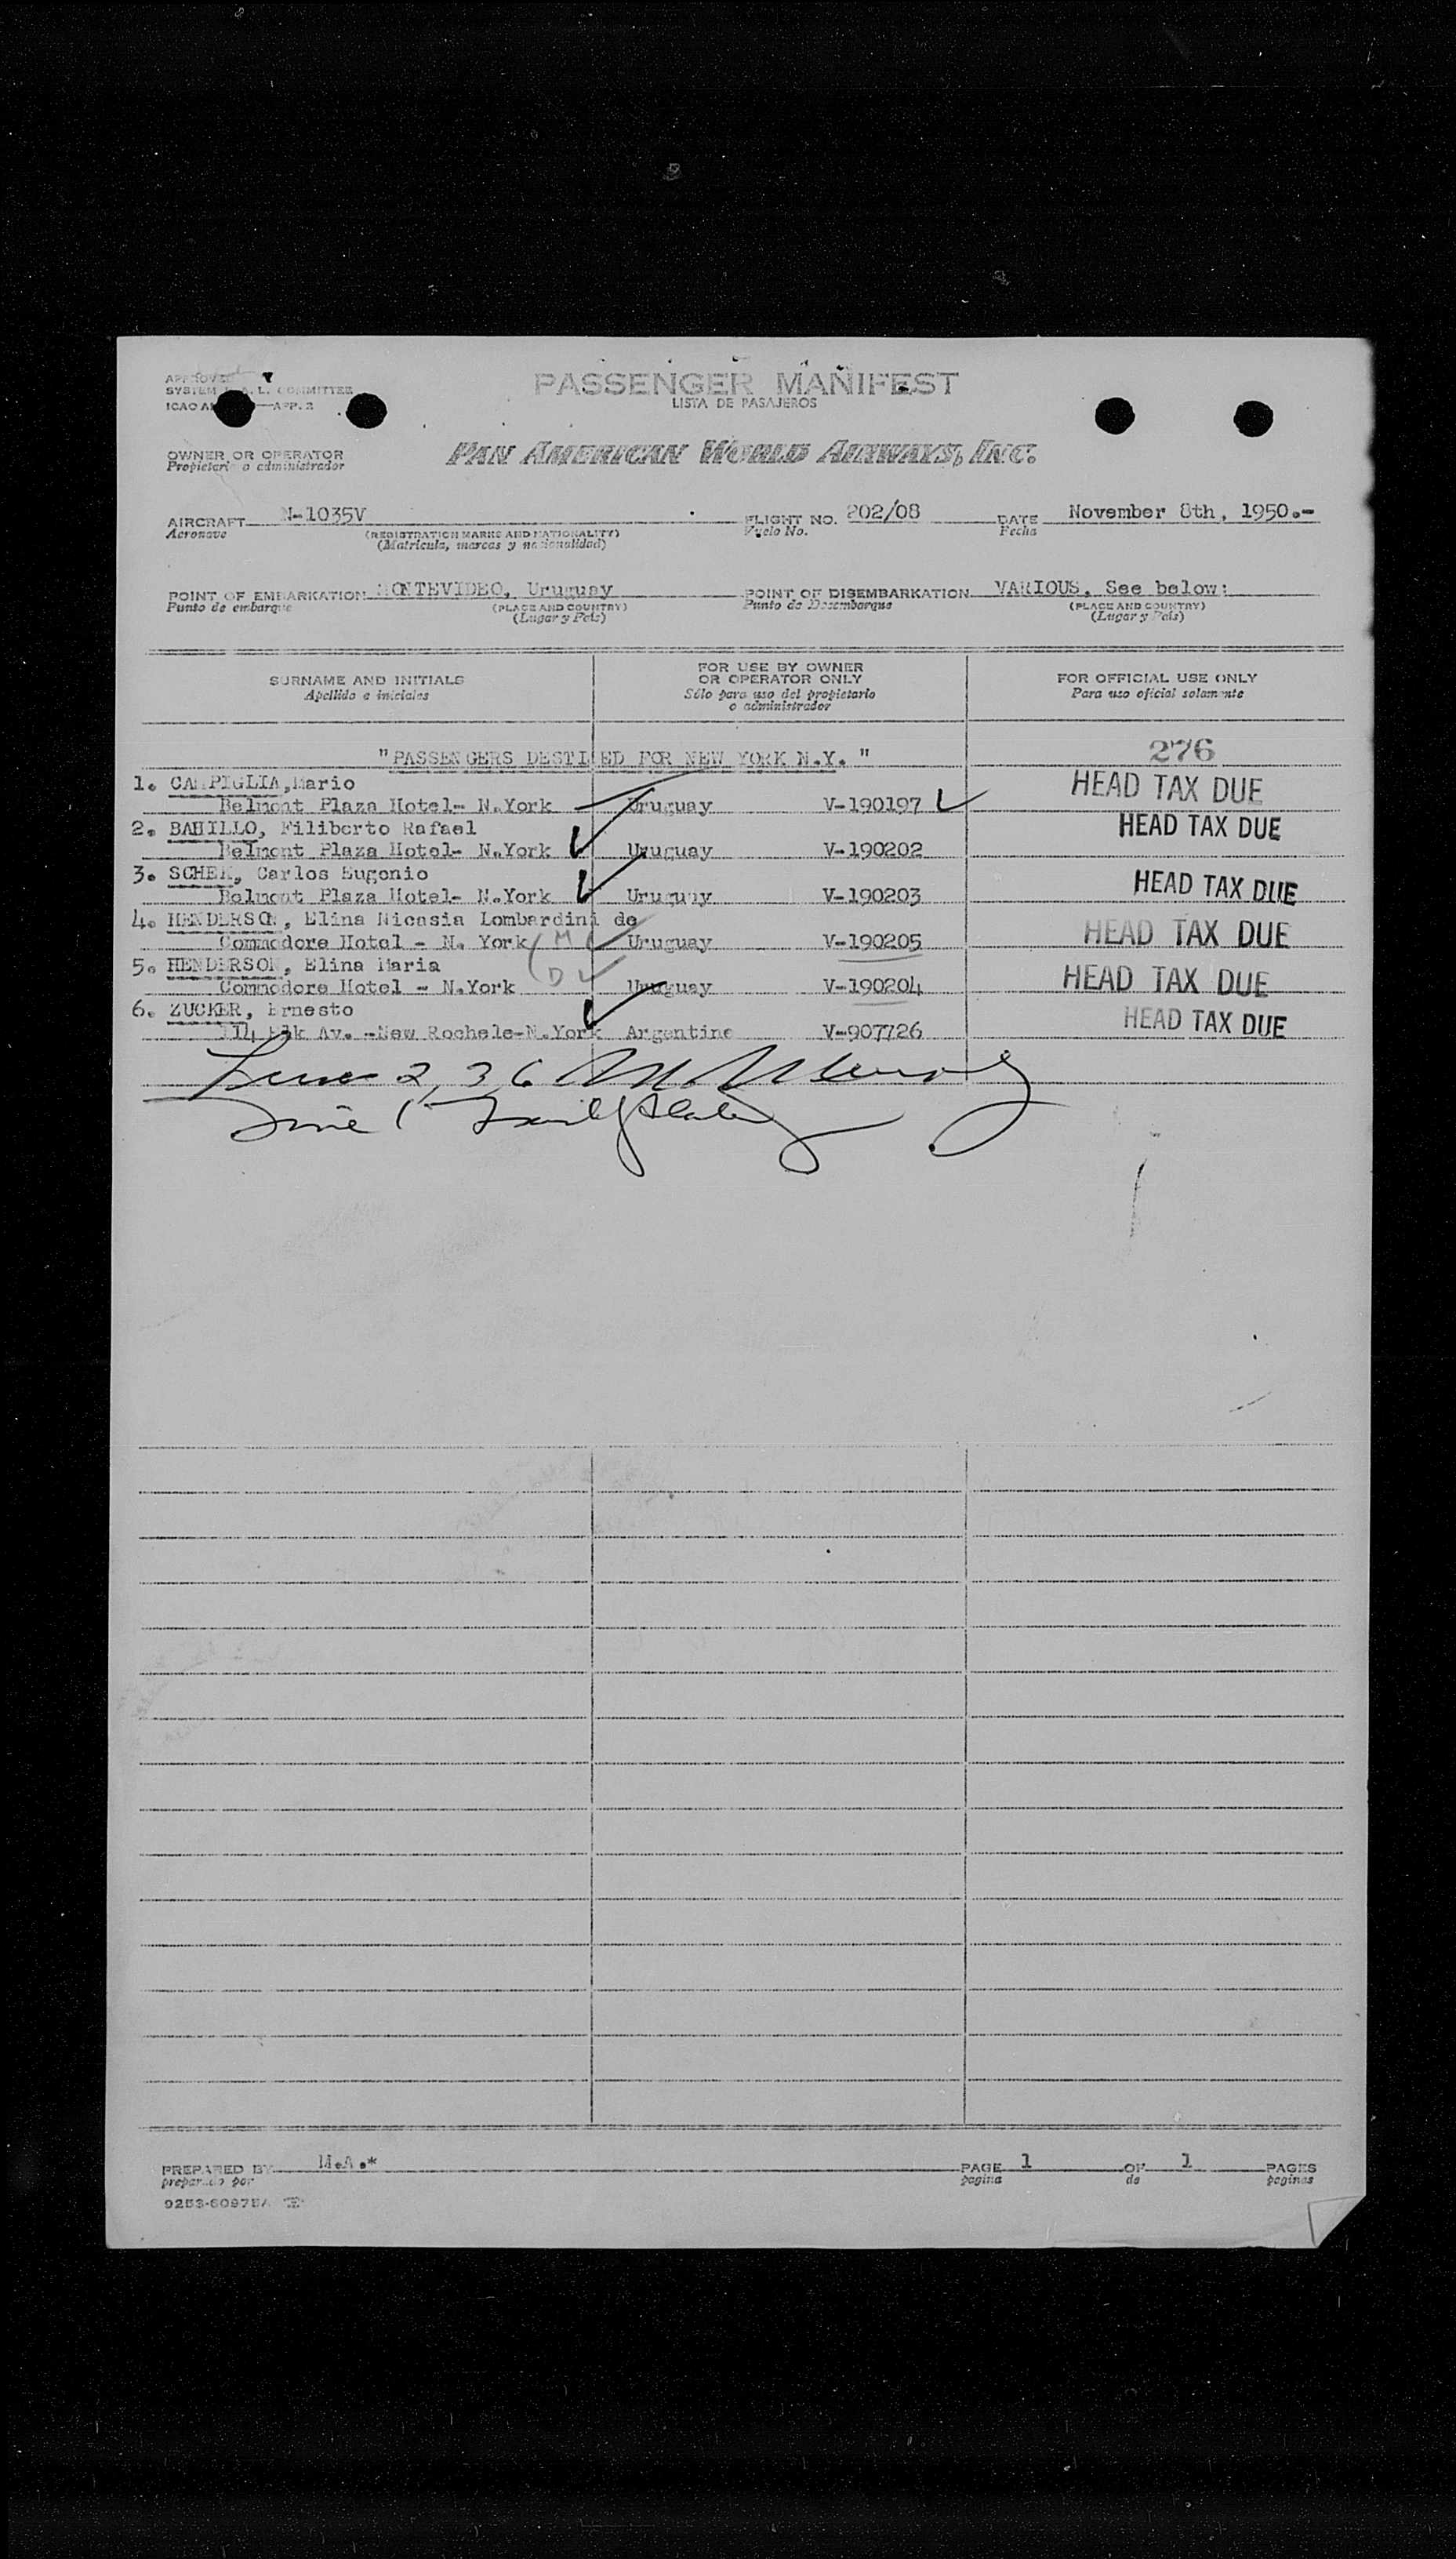 APPROVED
SYSTEM F.A.L. COMMITTEE
ICAO APP. 2
PASSENGER MANIFEST
LISTA DE PASAJEROS
OWNER OR OPERATOR
Propietario o administrador
PAN AMERICAN WORLD AIRWAYS, INC.
AIRCRAFT N-1035V FLIGHT NO. 202/08 DATE November 8th, 1950.-
Aeronave (REGISTRATION MARKS AND NATIONALITY) Vuelo No. Fecha
(Matricula, marcas y nacionalidad)
POINT OF EMBARKATION MONTEVIDEO, Uruguay POINT OF DISEMBARKATION VARIOUS, See below:
Punto de embarque (PLACE AND COUNTRY) Punto de Desembarque (PLACE AND COUNTRY)
(Lugar y País) (Lugar y País)
SURNAME AND INITIALS
Apellido e iniciales
FOR USE BY OWNER
OR OPERATOR ONLY
Sólo para uso del propietario
o administrador
FOR OFFICIAL USE ONLY
Para uso oficial solamente
"PASSENGERS DESTINED FOR NEW YORK N.Y. " 276
1. CAMPIGLIA,Mario HEAD TAX DUE
Belmont Plaza Hotel- N.York Uruguay V-190197
2. BADILLO, Filiberto Rafael HEAD TAX DUE
Belmont Plaza Hotel- N.York Uruguay V-190202
3. Carlos Eugenio HEAD TAX DUE
Belmont Plaza Hotel- N.York Uruguay V-190203
4. HENDERSON, Elina Nicasia Lombardini de HEAD TAX DUE
Commodore Hotel - N. York (M Uruguay V-190205
5. HENDERSON, Elina Maria HEAD TAX DUE
Commodore Hotel - N.York (D Uruguay V-190204
6. ZUCKER, Ernesto HEAD TAX DUE
114 Elk Av. -New Rochele-N.York Argentine V-907726
Lines 2, 3, 6
Line 1
PREPARED BY M.A.* PAGE 1 OF 1 PAGES
preparado por pagina de paginas